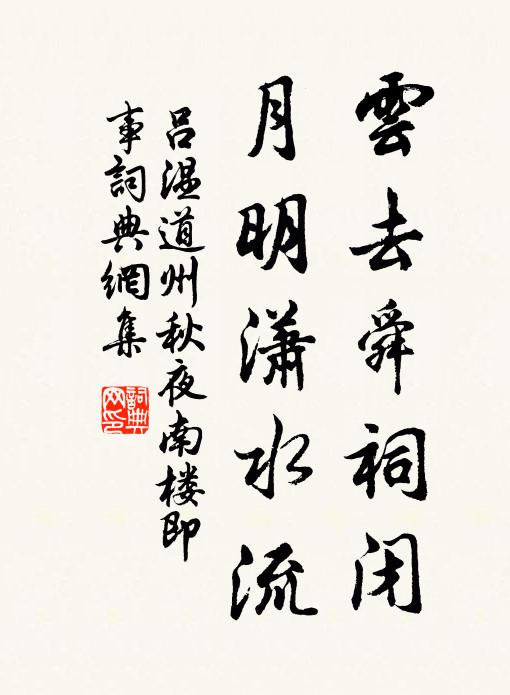 雲去舜祠闭
月明瀟水流
吕温道州秋夜南楼即
事詞典網集
詞典
网印